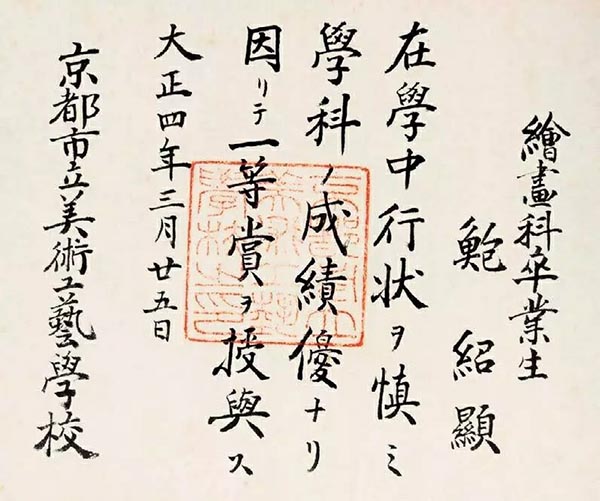 繪畫科卒業生
鮑紹顯
在學中行状ヲ慎ミ
學科ノ成績優ナリ
因リテ一等賞ヲ授與ス
大正四年三月廿五日
京都市立美術工藝學校